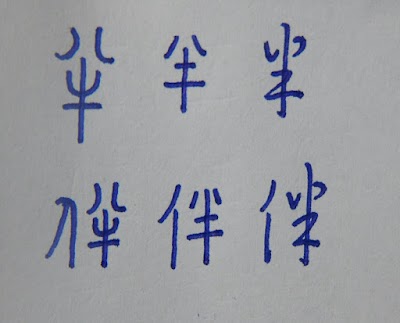 半 半 半
伴 伴 伴